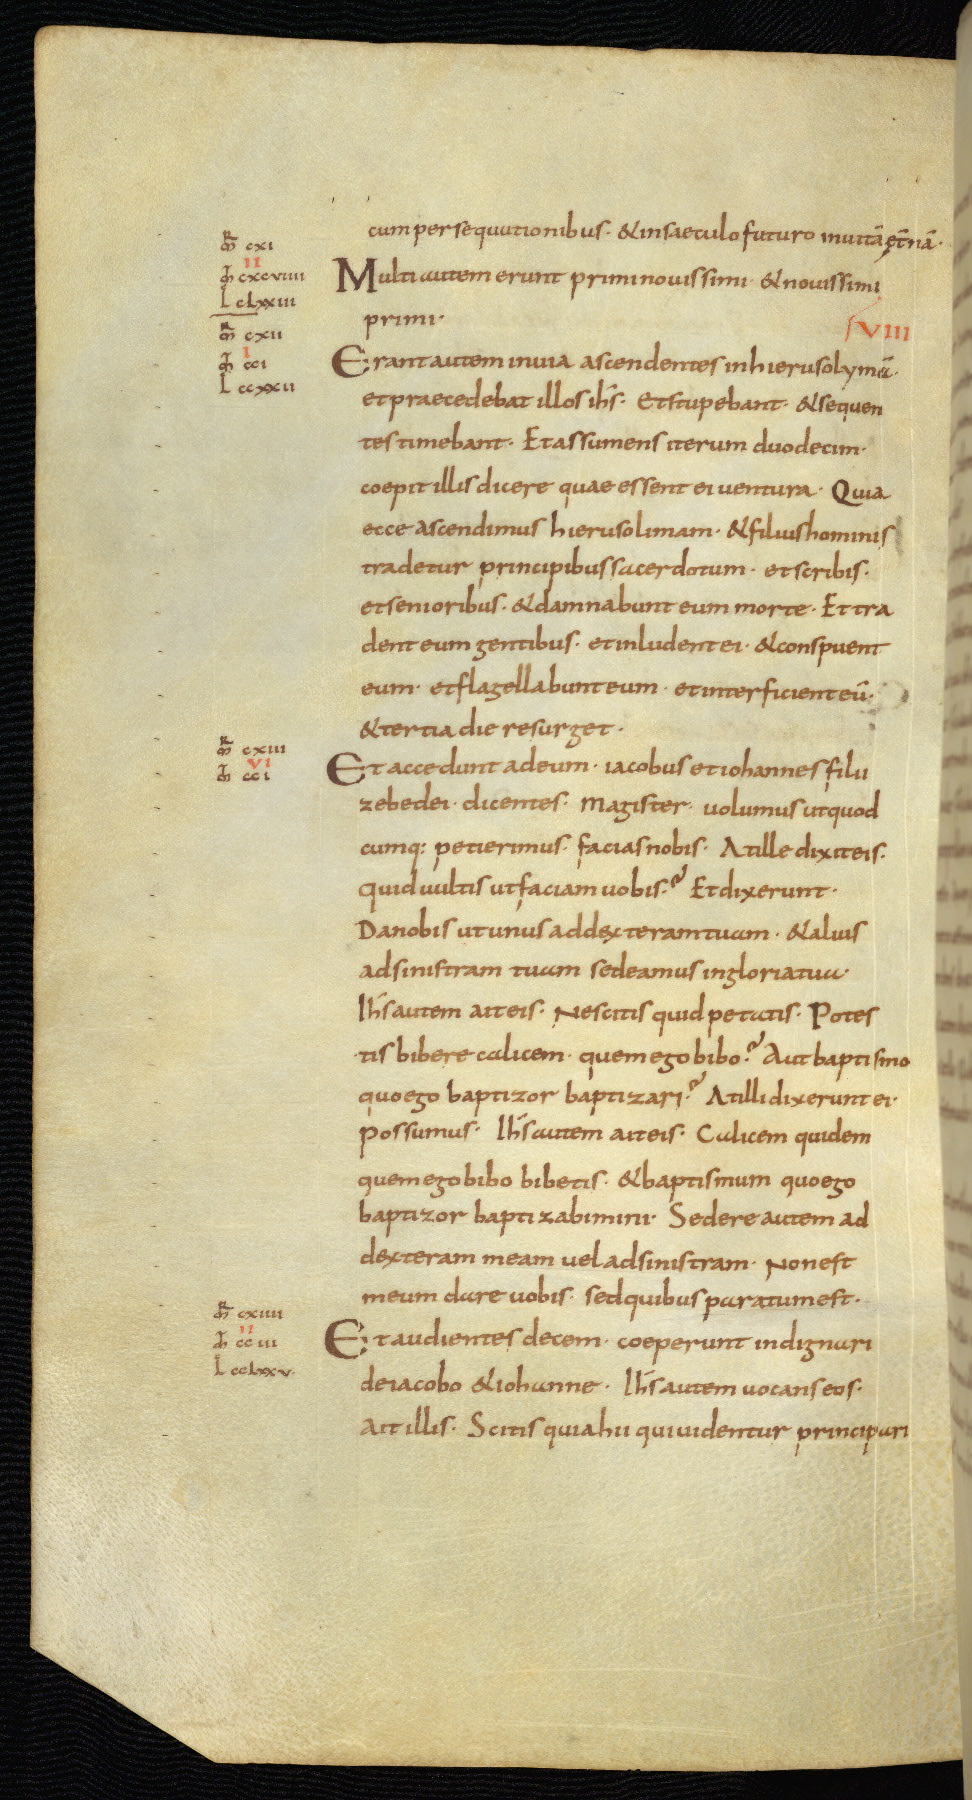 cum persequutionibus· & in saeculo futuro in uitā et̄nā·
mr̄ cxi
ii
mt̄ cxcviiii
L clxxiii
Multi autem erunt primi nouissimi· & nouissimi
primi·
mr̄ cxii
i
mt̄ cci
L ccxxii
VIII
Erant autem in uia ascendentes in hierusolymā·
et praecedebat illos ih̄s· Et stupebant· & sequen
tes timebant· Et assumens iterum duodecim·
coepit illis dicere quae essent ei uentura· Quia
ecce ascendimus hierusolimam· & filius hominis
tradetur principibus sacerdotum· et scribis·
et senioribus· & damnabunt eum morte· Et tra
dent eum gentibus· et inludent ei· & conspuent
eum· et flagellabunt eum· et interficient eū·
& tertia die resurget·
mr̄ cxiii
vi
mt̄ cci
Et accedunt ad eum· iacobus et iohannes filii
zebedei· dicentes· Magister· uolumus ut quod
cumq: petierimus· facias nobis· At ille dixit eis·
quid uultis ut faciam uobis? Et dixerunt·
Da nobis ut unus ad dexteram tuam· & alius
ad sinistram tuam sedeamus in gloria tua·
Ih̄s autem ait eis· Nescitis quid petatis· Potes
tis bibere calicem· quem ego bibo? Aut baptismo
quo ego baptizor baptizari? At illi dixerunt ei·
possumus· Ih̄s autem ait eis· Calicem quidem
quem ego bibo bibetis· & baptismum quo ego
baptizor baptizabimini· Sedere autem ad
dexteram meam uel ad sinistram· Non est
meum dare uobis· sed quibus paratum est·
mr̄ cxiiii
ii
mt̄ cciii
L cclxxv·
Et audientes decem· coeperunt indignari
de iacobo & iohanne· Ih̄s autem uocans eos·
ait illis· Scitis quia hii qui uidentur principari